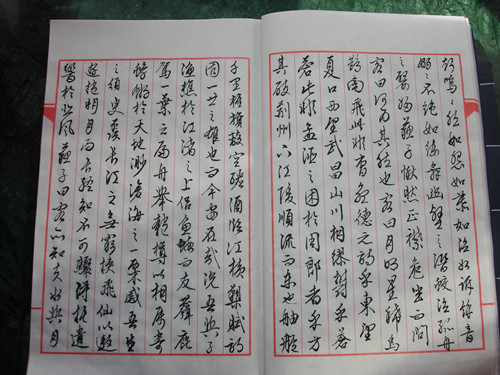 聲嗚々然如怨如慕如泣如訴餘音
嫋々不絕如縷舞幽壑之潛蛟泣孤舟
之嫠婦蘇子愀然正襟危坐而問
客曰何為其然也客曰月明星稀烏
鵲南飛此非曹孟德之詩乎東望
夏口西望武昌山川相繆鬱乎蒼
蒼此非孟德之困於周郎者乎方
其破荊州下江陵順流而東也舳艫
千里旌旗蔽空釃酒臨江橫槊賦詩
固一世之雄也而今安在哉況吾與子
漁樵於江渚之上侶魚蝦而友麋鹿
駕一葉之扁舟舉匏樽以相屬寄
蜉蝣於天地渺滄海之一粟哀吾生
之須臾羨長江之無窮挾飛仙以遨
遊抱明月而長終知不可驟得托遺
響於悲風蘇子曰客亦知夫水與月